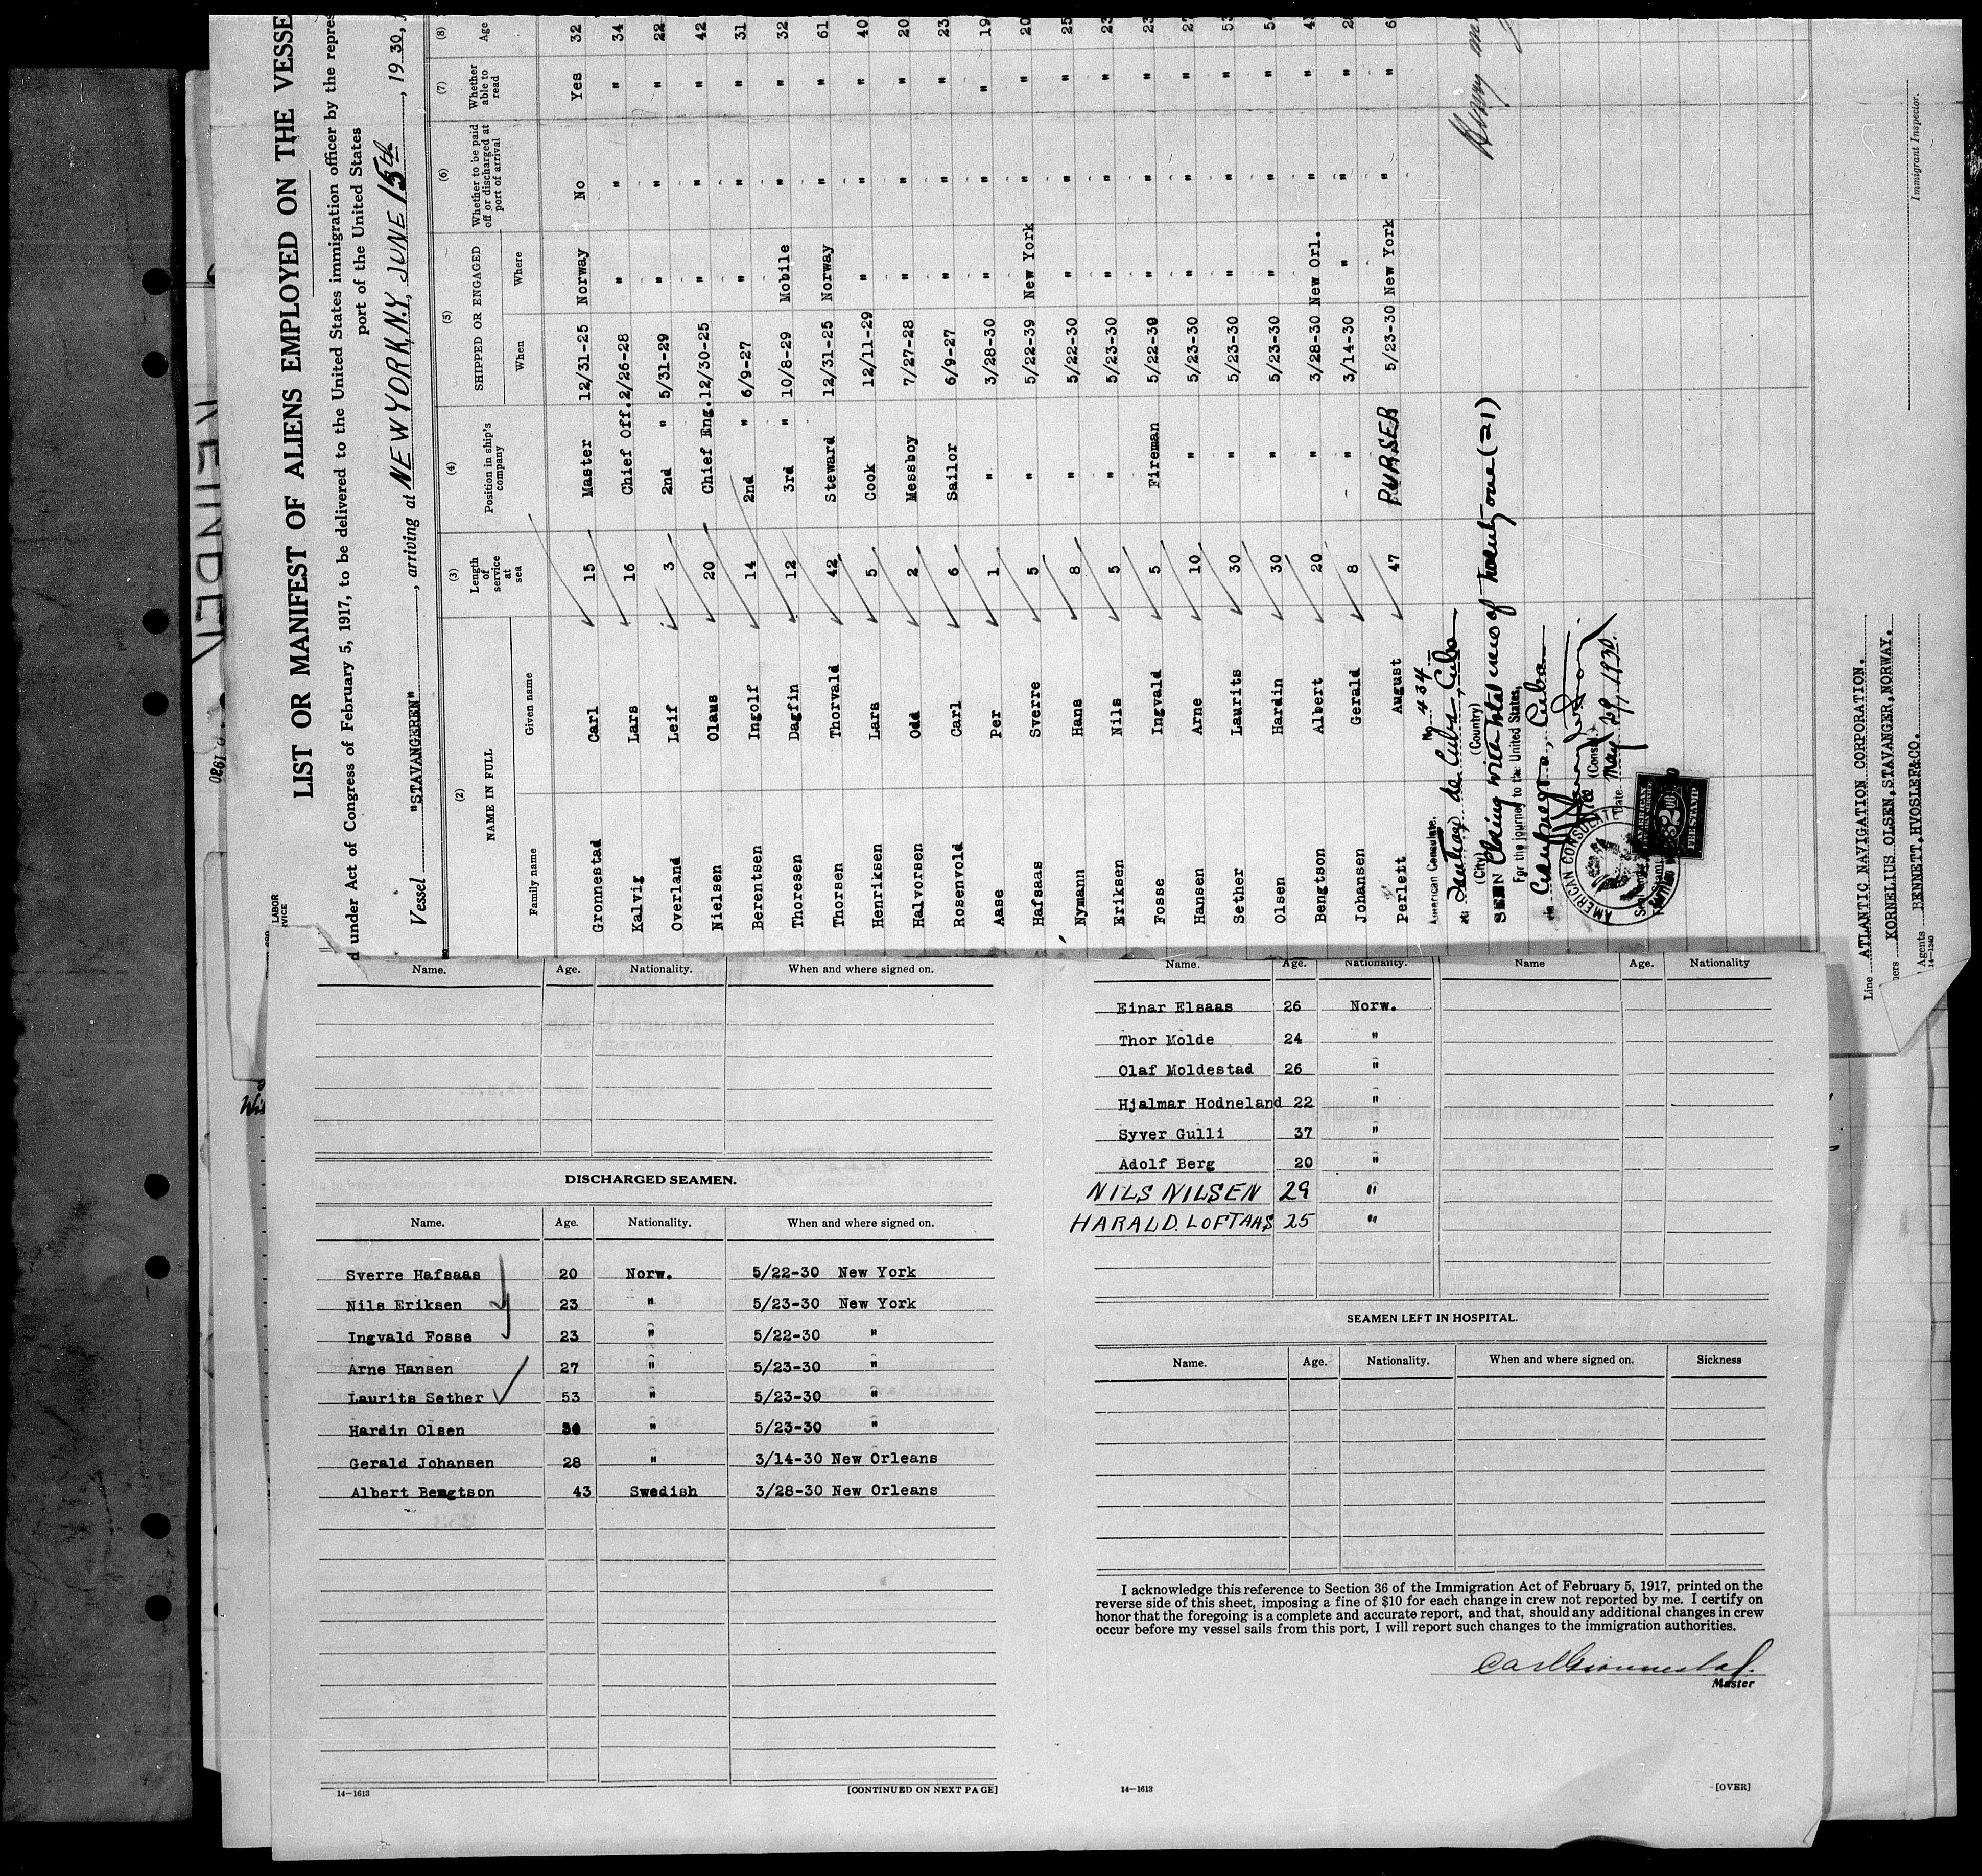 LIST OR MANIFEST OF ALIENS EMPLOYED ON THE VESSE
d under Act of Congress of February 5, 1917, to be delivered to the United States immigration officer by the repres
port of the United States
Vessel "STAVANGEREN", arriving at NEW YORK, N.Y. JUNE 15th, 1930,
(2) (3) (4) (5) (6) (7) (8)
NAME IN FULL Length of service at sea Position in ship's company SHIPPED OR ENGAGED Whether to be paid off or discharged at port of arrival Whether able to read Age
Family name Given name When Where
Gronnestad Carl 15 Master 12/31-25 Norway No Yes 32
Kalvig Lars 16 Chief Off. 2/26-28 " " " 34
Overland Leif 3 2nd " 5/31-29 " " " 22
Nielsen Olaus 20 Chief Eng. 12/30-25 " " " 42
Berentsen Ingolf 14 2nd " 6/9-27 " " " 31
Thoresen Dagfin 12 3rd " 10/8-29 Mobile " " 32
Thorsen Thorvald 42 Steward 12/31-25 Norway " " 61
Henriksen Lars 5 Cook 12/11-29 " " " 40
Halvorsen Odd 2 Messboy 7/27-28 " " " 20
Rosenvold Carl 6 Sailor 6/9-27 " " " 23
Aase Per 1 " 3/28-30 " " " 19
Hafsaas Sverre 5 " 5/22-39 New York " " 20
Nymann Hans 8 " 5/22-30 " " " 25
Eriksen Nils 5 " 5/23-30 " " " 23
Fosse Ingvald 5 Fireman 5/22-39 " " " 23
Hansen Arne 10 " 5/23-30 " " " 27
Sether Laurits 30 " 5/23-30 " " " 53
Olsen Hardin 30 " 5/23-30 " " "
Bengtson Albert 20 " 3/28-30 New Orl. " "
Johansen Gerald 8 " 3/14-30 " " "
Perlett August 47 PURSER 5/23-30 New York " "
No 434
American Consulate.
at Santiago de Cuba, Cuba
(City) (Country)
SEEN crew of twenty one (21)
For the journey to the United States,
Cuba
(Consul)
Date May 29, 1930
AMERICAN CONSULATE
AMERICAN
FEE STAMP
Line ATLANTIC NAVIGATION CORPORATION.
ners KORNELIUS OLSEN, STAVANGER, NORWAY.
Agents BENNETT, HVOSLEF&CO.
14-1240
Immigrant Inspector.
LABOR
Name. Age. Nationality. When and where signed on.
DISCHARGED SEAMEN.
Name. Age. Nationality. When and where signed on.
Sverre Hafsaas 20 Norw. 5/22-30 New York
Nils Eriksen 23 " 5/23-30 New York
Ingvald Fosse 23 " 5/22-30 "
Arne Hansen 27 " 5/23-30 "
Laurits Sether 53 " 5/23-30 "
Hardin Olsen " 5/23-30 "
Gerald Johansen 28 " 3/14-30 New Orleans
Albert Bengtson 43 Swedish 3/28-30 New Orleans
14—1613 [CONTINUED ON NEXT PAGE]
Name. Age. Nationality. Name Age. Nationality
Einar Elsaas 26 Norw.
Thor Molde 24 "
Olaf Moldestad 26 "
Hjalmar Hodneland 22 "
Syver Gulli 37 "
Adolf Berg 20 "
NILS NILSEN 29 "
HARALD. LOFTAAS 25 "
SEAMEN LEFT IN HOSPITAL.
Name. Age. Nationality. When and where signed on. Sickness
I acknowledge this reference to Section 36 of the Immigration Act of February 5, 1917, printed on the
reverse side of this sheet, imposing a fine of $10 for each change in crew not reported by me. I certify on
honor that the foregoing is a complete and accurate report, and that, should any additional changes in crew
occur before my vessel sails from this port, I will report such changes to the immigration authorities.
Carl Gronnestad.
Master
14—1613 [OVER]